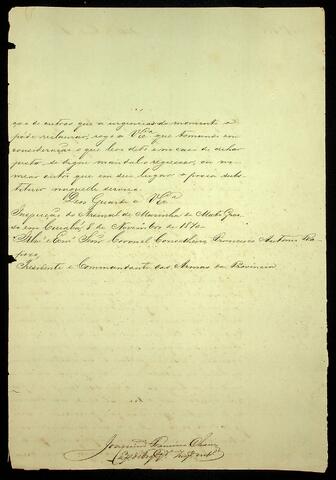 ção de outros que a urgencia do momento a
póde reclamar; rogo a V Ex.ª que tomando em
consideração o que levo dito em caso de achar
justo, se digne mandal-o regressar, ou no-
mear outro que em seu lugar o possa subs-
tituir naquelle serviço.
Deos Guarde a V Ex.ª
Inspecção do Arsenal de Marinha de Mato Gros-
so em Cuiabá, 8 de Novembro de 1870
Ill.mo e Ex.mo Sñr Coronel Conselheiro Francisco Antonio Ra-
pozo
Presidente e Commandante das Armas da Provincia
Joaquim Francisco Chaves